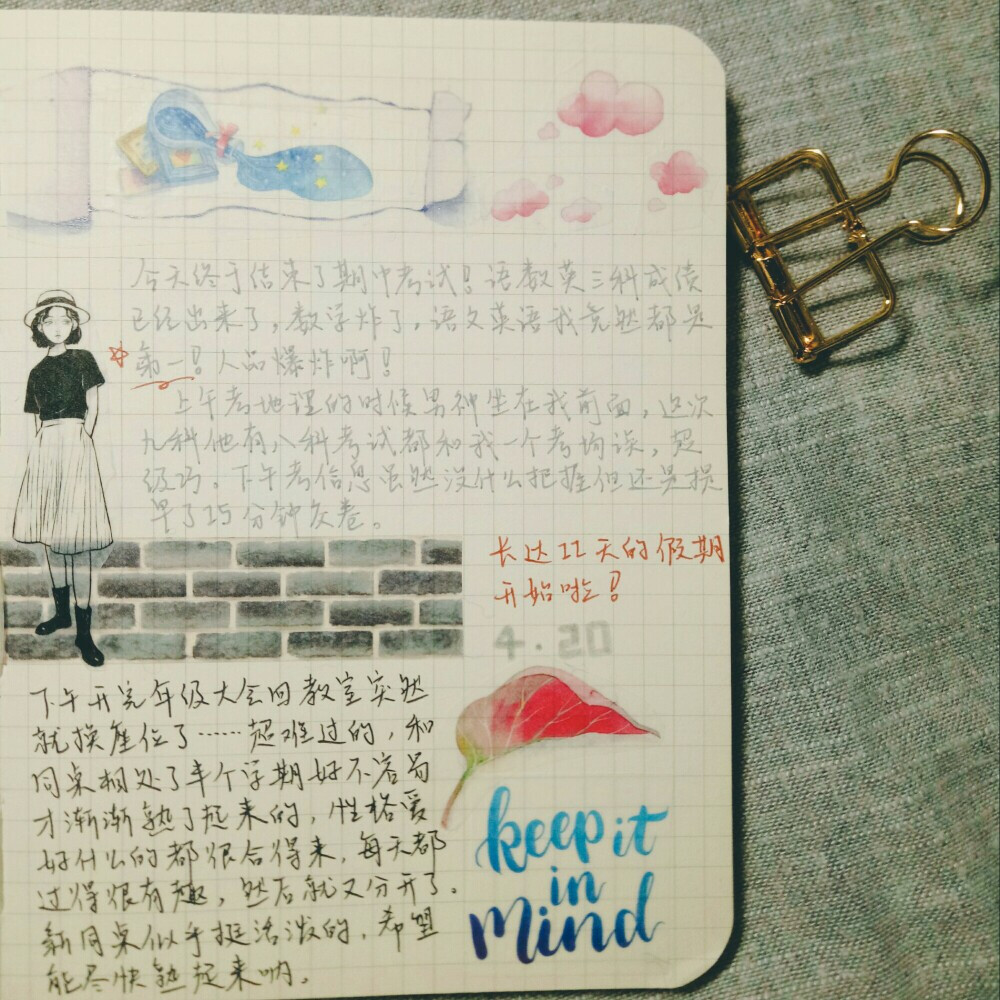 今天终于结束了期中考试！语数英三科成绩
已经出来了，数学炸了，语文英语我竟然都是
第一！人品爆炸啊！
上午考地理的时候男神坐在我前面，这次
九科他有八科考试都和我一个考场诶，超
级巧。下午考信息虽然没什么把握但还是提
早了25分钟交卷。
长达11天的假期
开始啦！
4.20
下午开完年级大会回教室突然
就换座位了……超难过的，和
同桌相处了半个学期好不容易
才渐渐熟了起来的，性格爱
好什么的都很合得来，每天都
过得很有趣，然后就又分开了。
新同桌似乎挺活泼的，希望
能尽快熟起来呐。
keep it
in
Mind